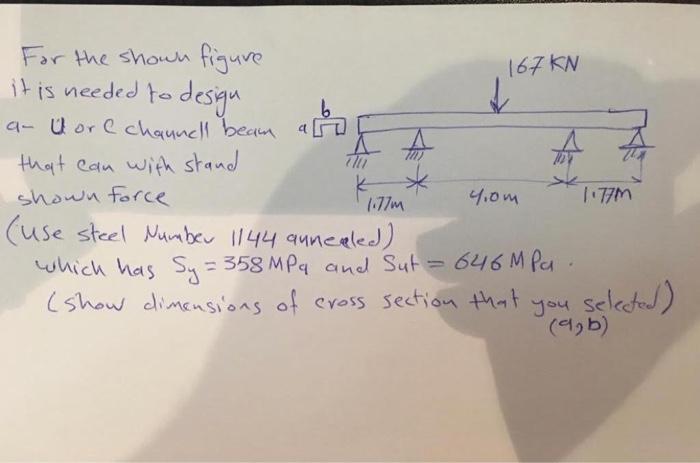 For the shown figure
it is needed to design
a- U or C channell beam
that can with stand
shown force
(use steel Number 1144 annealed)
which has Sy = 358 MPa and Sut = 646 MPa.
(show dimensions of cross section that you selected)
(a,b)
167 KN
b
a
1.77m
4.0m
1.77m